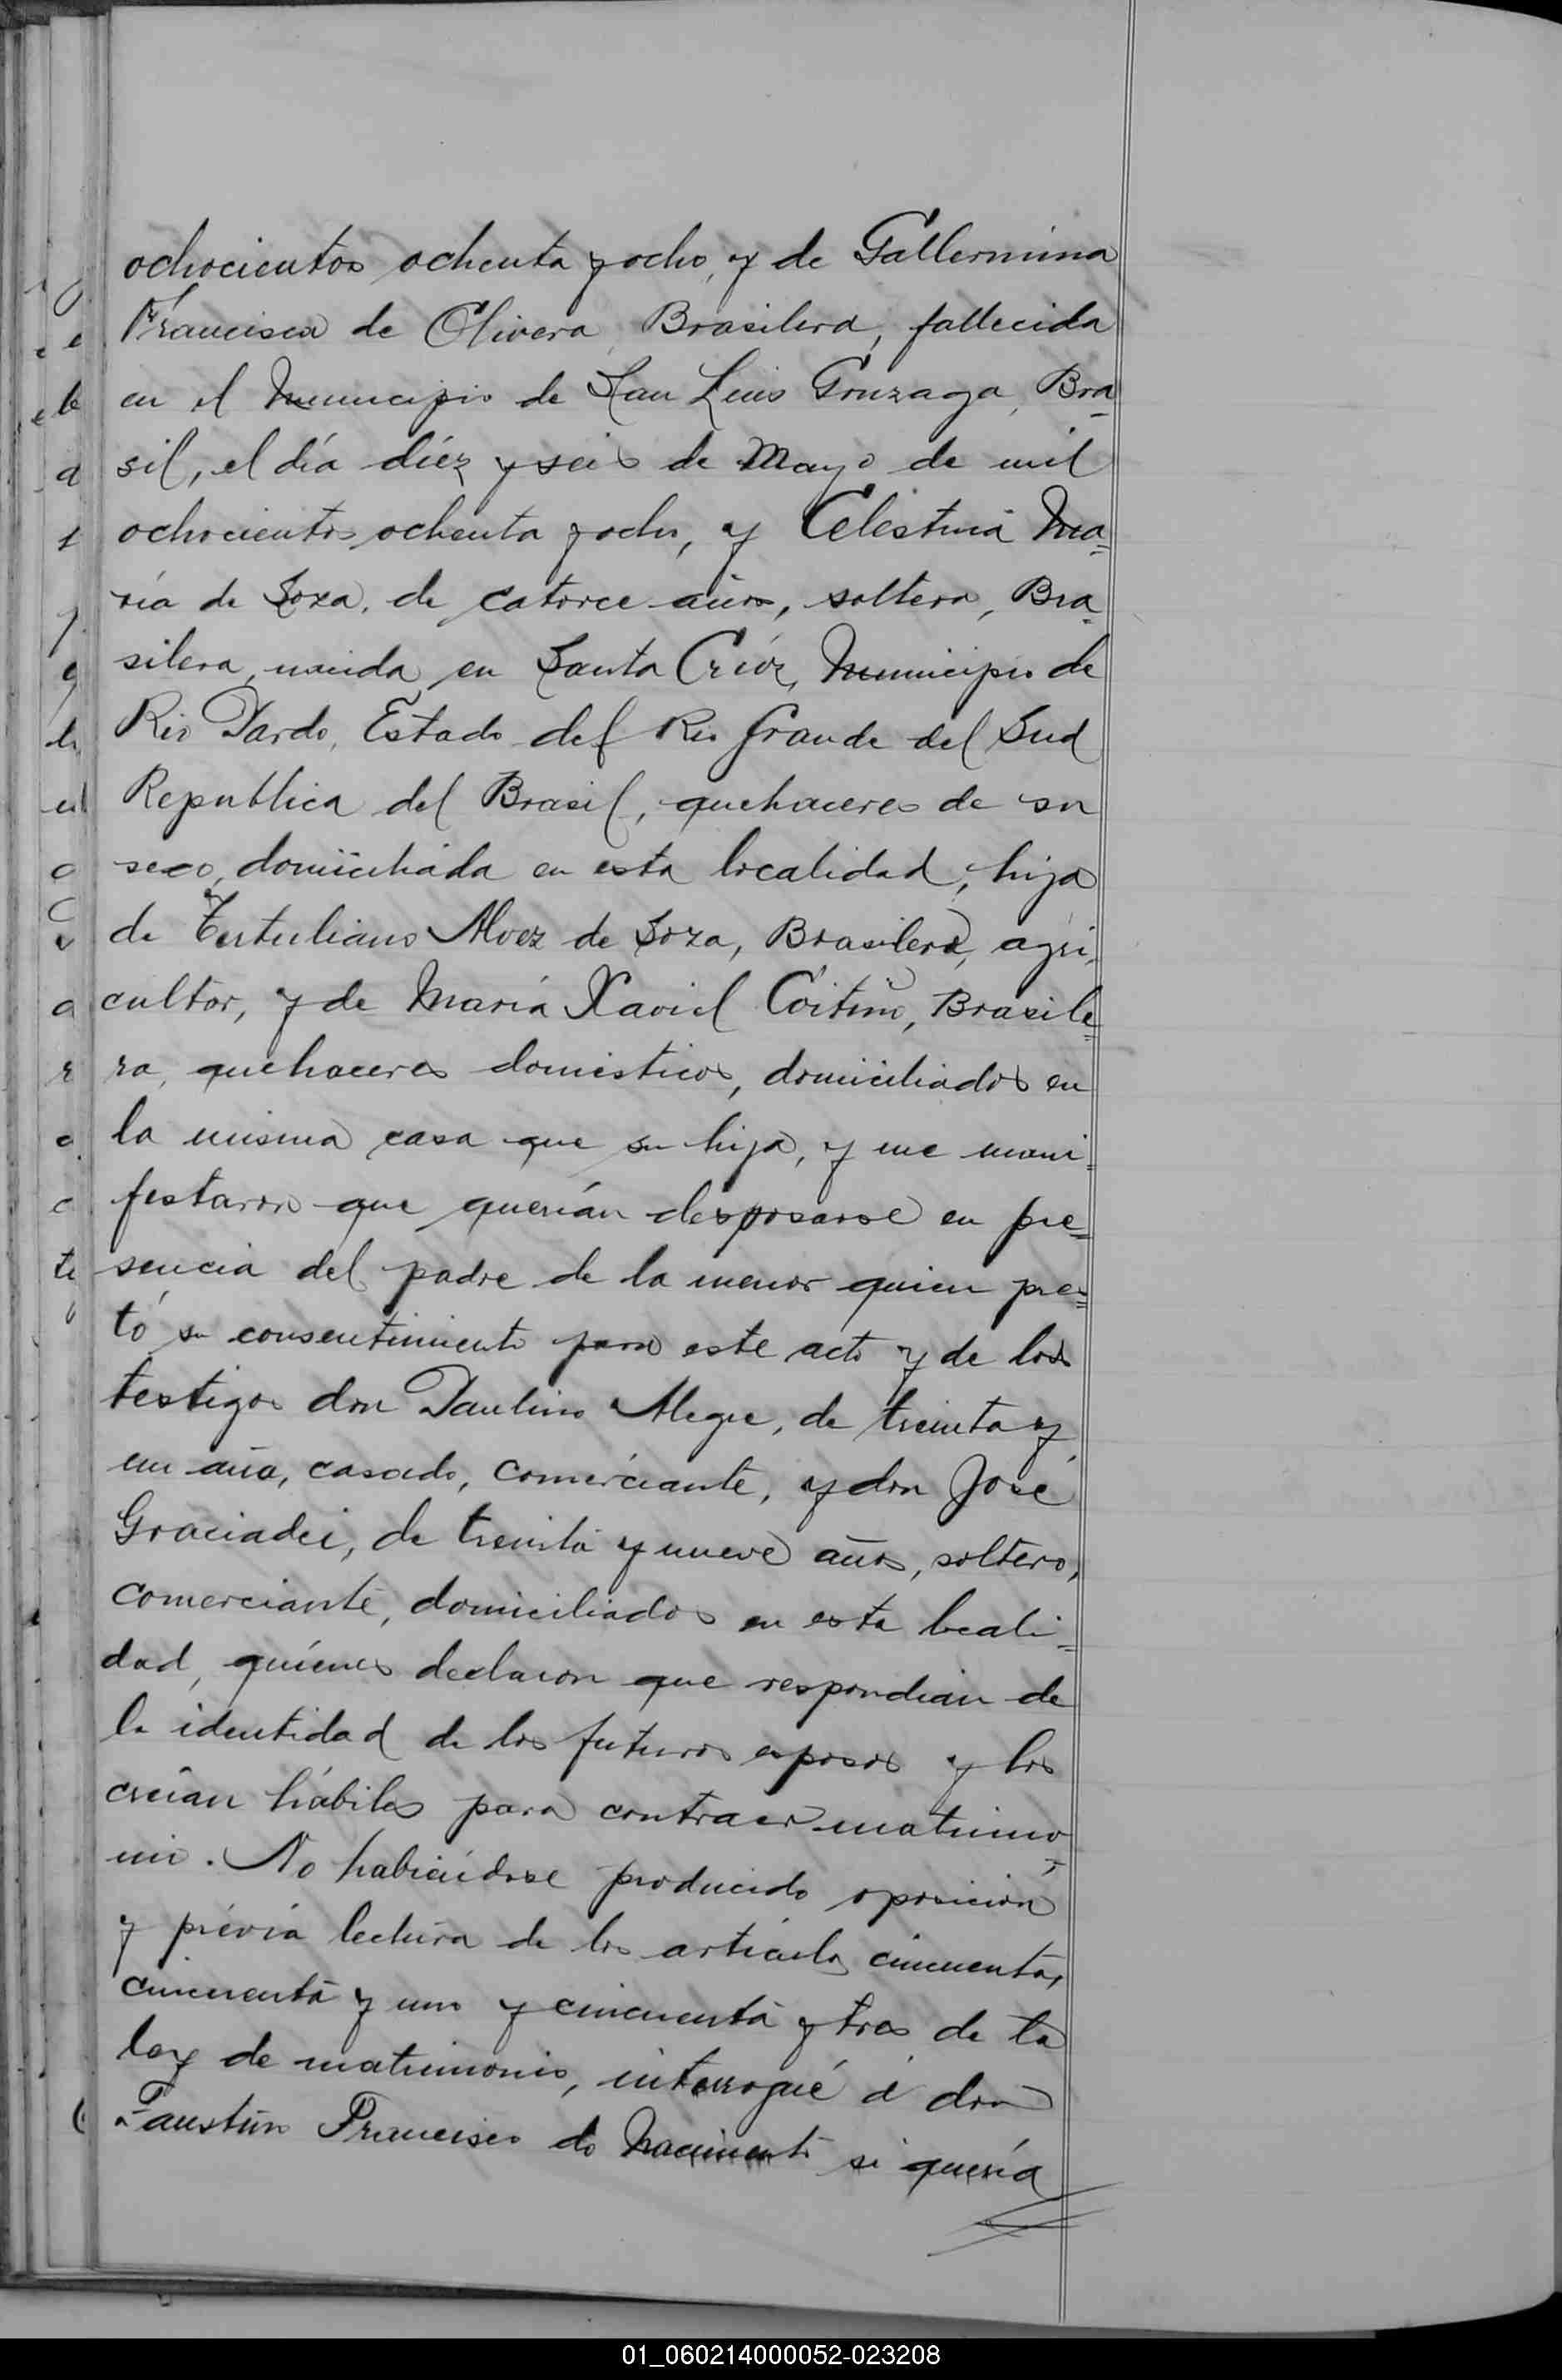 ochocientos ochenta y ocho, y de Gallermina
Francisca de Olivera, Brasilera, fallecida
en el Municipio de San Luis Gonzaga, Bra-
sil, el día diéz y seis de Mayo de mil
ochocientos ochenta y ocho, y Celestina Ma=
ría de Soza, de catorce años, soltera, Bra=
silera, nacida en Santa Crúz, Municipio de
Rio Pardo, Estado del Rio Grande del Sud
Republica del Brasil, quehaceres de su
sexo, domiciliada en esta localidad, hija
de Tertuliano Alvez de Soza, Brasilero, agri=
cultor, y de María Xaviel Coitiño, Brasile=
ra, quehaceres domésticos, domiciliados en
la misma casa que su hija, y me mani=
festaron que querían desposarse en pre=
sencia del padre de la menor quien pres=
tó su consentimiento para este acto y de los
testigos don Paulino Alegre, de treinta y
un año, casado, comerciante, y don José
Graciadei, de treinta y nueve años, soltero,
comerciante, domiciliados en esta locali=
dad, quiénes declaron que respondian de
la identidad de los futuros esposos y los
creían hábiles para contraer matrimo=
nio. No habiéndose producido oposición
y prévia lectura de los artículos cincuenta,
cincuenta y uno y cincuenta y tres de la
ley de matrimonio, interrogué á don
Faustino Francisco do Nacimento si quería
01_060214000052-023208